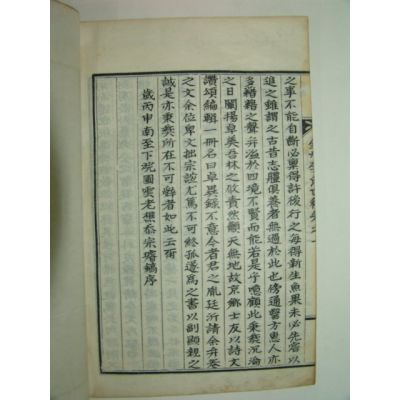 之事不能自斷必稟得許後行之每得新生魚果未必先嘗以
進之雖謂之古昔志體俱養者無過於此也傍通醫方惠人亦
多藉藉之聲井溢於四境不賢而能若是乎噫顧此秉彛沉淪
之日闡揚卓美吾林之攸責然顧天無地故京鄉士友以詩文
讚頌編輯一冊名曰卓異錄不意今者君之胤廷沂請余弁卷
之文余位卑文拙宗誼尤篤不可終孤遂爲之書以副顯親之
誠是亦秉彛所在不可辭者如此云爾
歲丙申南至下浣圓雲老樵泰宗璿鎬序